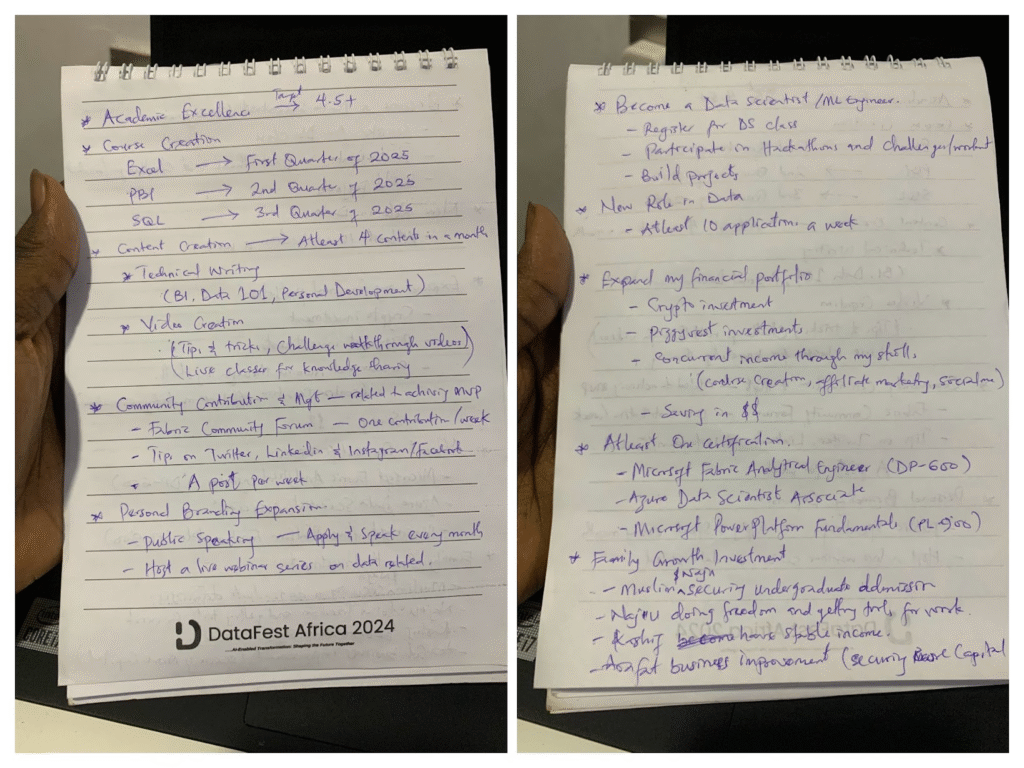 Target
* Academic Excellence → 4.5+
* Course Creation
Excel → First Quarter of 2025
PBI → 2nd Quarter of 2025
SQL → 3rd Quarter of 2025
* Content Creation → Atleast 4 contents in a month
* Technical Writing
(BI, Data 101, Personal Development)
* Video Creation
(Tips & tricks, Challenge walkthrough videos)
(Live classes for knowledge sharing
* Community Contribution & Mgt — related to achieving MVP
- Fabric Community Forum — One contribution/week
- Tips on Twitter, Linkedin & Instagram/facebook
A post per week
* Personal Branding Expansion
- Public Speaking — Apply & Speak every month
- Host a live webinar series on data related.
DataFest Africa 2024
...AI-Enabled Transformation: Shaping the Future Together
* Become a Data Scientist/ML Engineer.
- Register for DS class
- Participate in Hackathons and challenges/
- Build projects
* New Role in Data
- Atleast 10 applications a week
* Expand my financial portfolio
- Crypto investment
- Piggyvest investments
- Concurrent income through my skills
(course creation, affiliate marketing,
- Saving in $$
* Atleast One certification.
- Microsoft Fabric Analytical Engineer (DP-600)
- Azure Data Scientist Associate
- Microsoft PowerPlatform Fundamentals (PL 900)
* Family Growth Investment
- securing undergraduate admission
- doing freedom and getting tools for work
- have stable income.
- business improvement (securing Capital